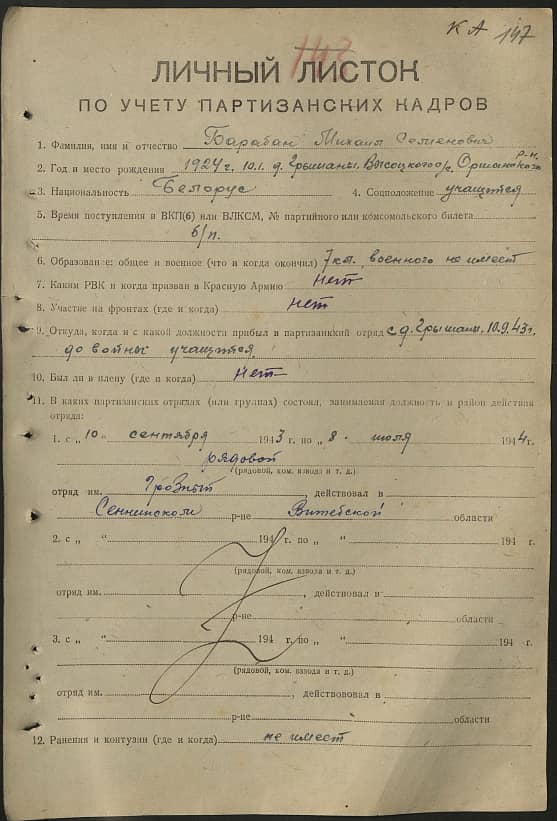 КА 147
ЛИЧНЫЙ ЛИСТОК
ПО УЧЕТУ ПАРТИЗАНСКИХ КАДРОВ
1. Фамилия, имя и отчество Барабан Михаил Семенович
2. Год и место рождения 1924 г. 10.1. д. Грышаны, Высоцкого с/с. Оршанского р-н.
3. Национальность Белорус 4. Соцположение учащийся
5. Время поступления в ВКП(б) или ВЛКСМ, № партийного или комсомольского билета
б/п.
6. Образование: общее и военное (что и когда окончил) 7 кл. военного не имеет
7. Каким РВК и когда призван в Красную Армию нет
8. Участие на фронтах (где и когда) нет
9. Откуда, когда и с какой должности прибыл в партизанский отряд с д. Грышаны, 10.9.43 г.
до войны учащийся.
10. Был ли в плену (где и когда) нет
11. В каких партизанских отрядах (или группах) состоял, занимаемая должность и район действия
отряда:
1. с „10“ сентября 1943 г. по „8. июля 1944 г.
рядовой
(рядовой, ком. взвода и т. д.)
отряд им. Грозный действовал в
Сеннинском р-не Витебской области
2. с „ “ 194 г. по „ “ 194 г.
(рядовой, ком. взвода и т. д.)
отряд им. , действовал в
р-не области
3. с „ “ 194 г. по „ “ 194 г.
(рядовой, ком. взвода и т. д.)
отряд им. , действововал в
р-не области
12. Ранения и контузии (где и когда) не имеет